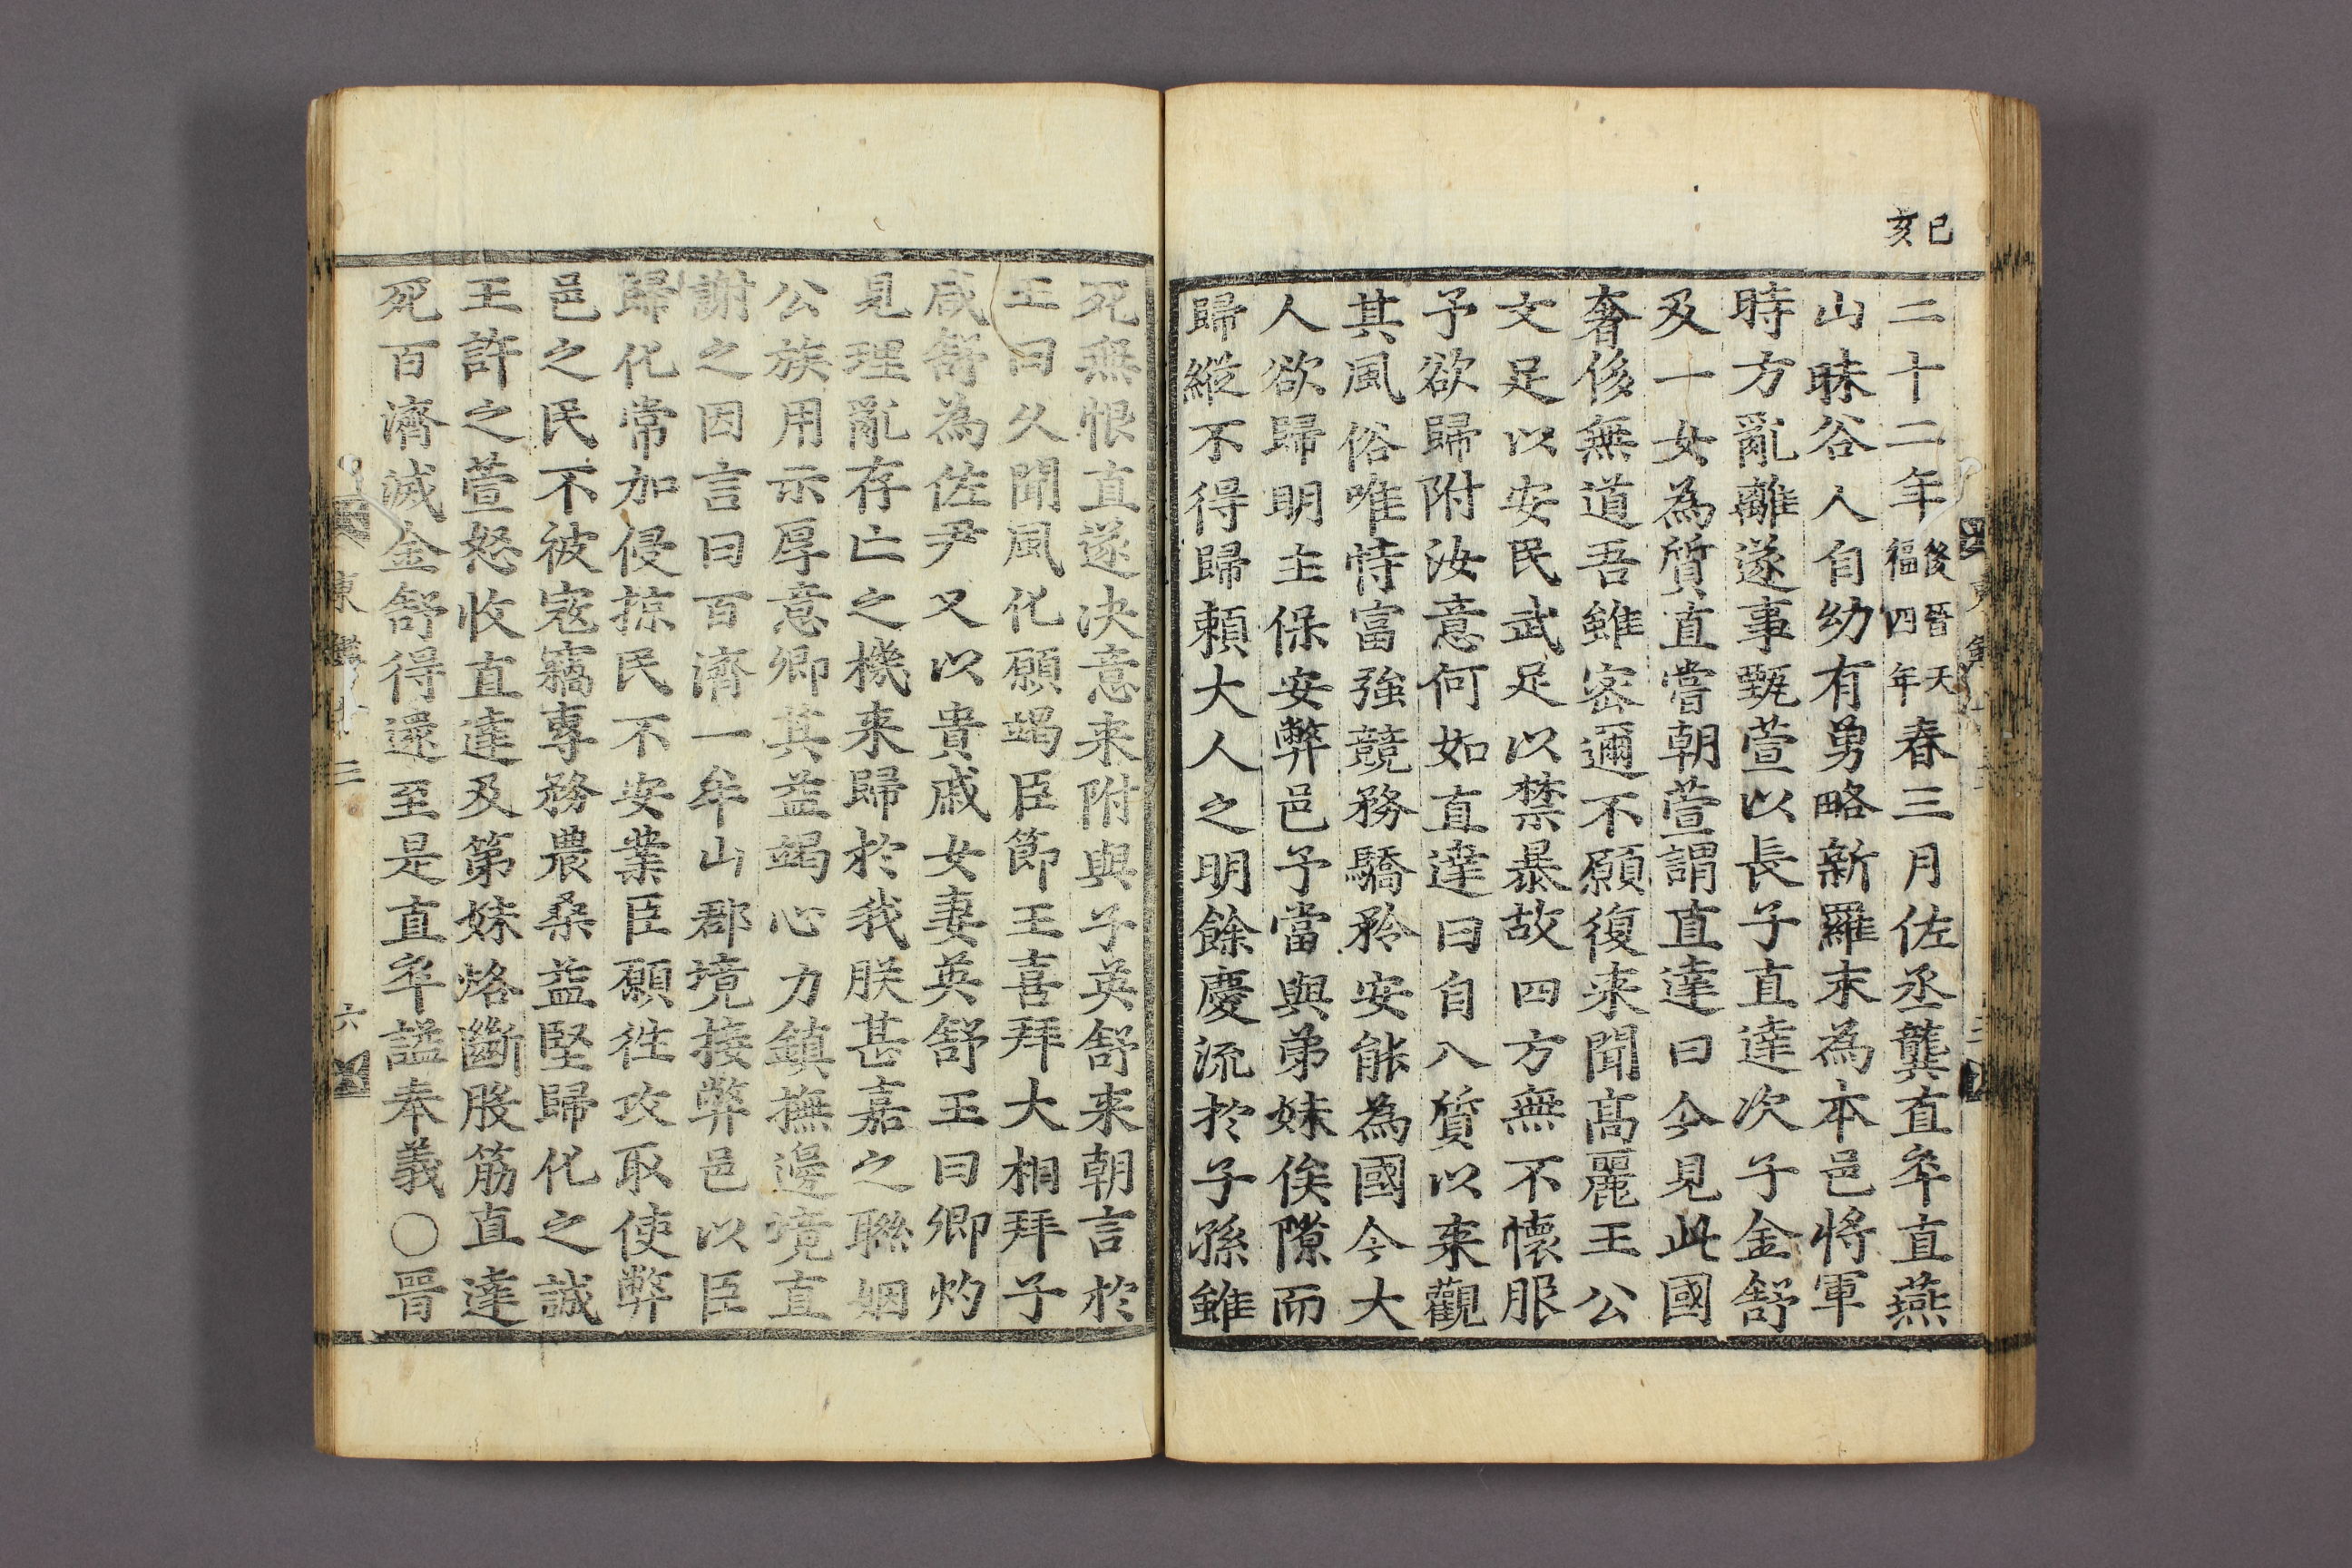 己亥
二十二年後晋天福四年春三月佐丞龔直卒直燕
山昧谷人自幼有勇略新羅末為本邑將軍
時方亂離遂事甄萱以長子直達次子金舒
及一女為質直嘗朝萱謂直達曰今見此國
奢侈無道吾雖密邇不願復来聞高麗王公
文足以安民武足以禁暴故四方無不懷服
予欲歸附汝意何如直達曰自入質以来觀
其風俗唯恃富強競務驕矜安能為國今大
人欲歸明主保安弊邑予當與弟妹俟隙而
歸縱不得歸賴大人之明餘慶流於子孫雖
死無恨直遂决意来附與子英舒来朝言於
王曰久聞風化願竭臣節王喜拜大相拜子
咸舒為佐尹又以貴戚女妻英舒王曰卿灼
見理亂存亡之機来歸於我朕甚嘉之聯姻
公族用示厚意卿其益竭心力鎮撫邊境直
謝之因言曰百濟一牟山郡境接弊邑以臣
歸化常加侵掠民不安業臣願徃攻取使弊
邑之民不被寇竊專務農桑益堅歸化之誠
王許之萱怒收直達及第妹烙斷股筋直達
死百濟滅金舒得還至是直卒謚奉義〇晋
東 三 六